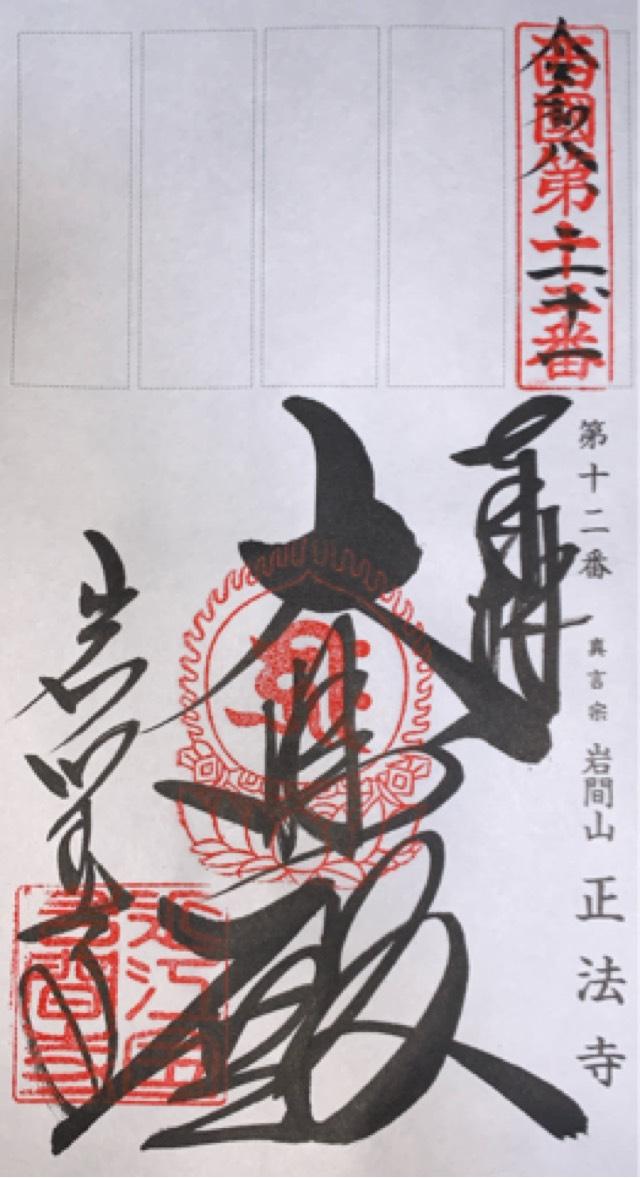 西國第十二番
令和八
第十二番 真言宗 岩間山 正法寺
奉拝
大悲殿
岩間寺